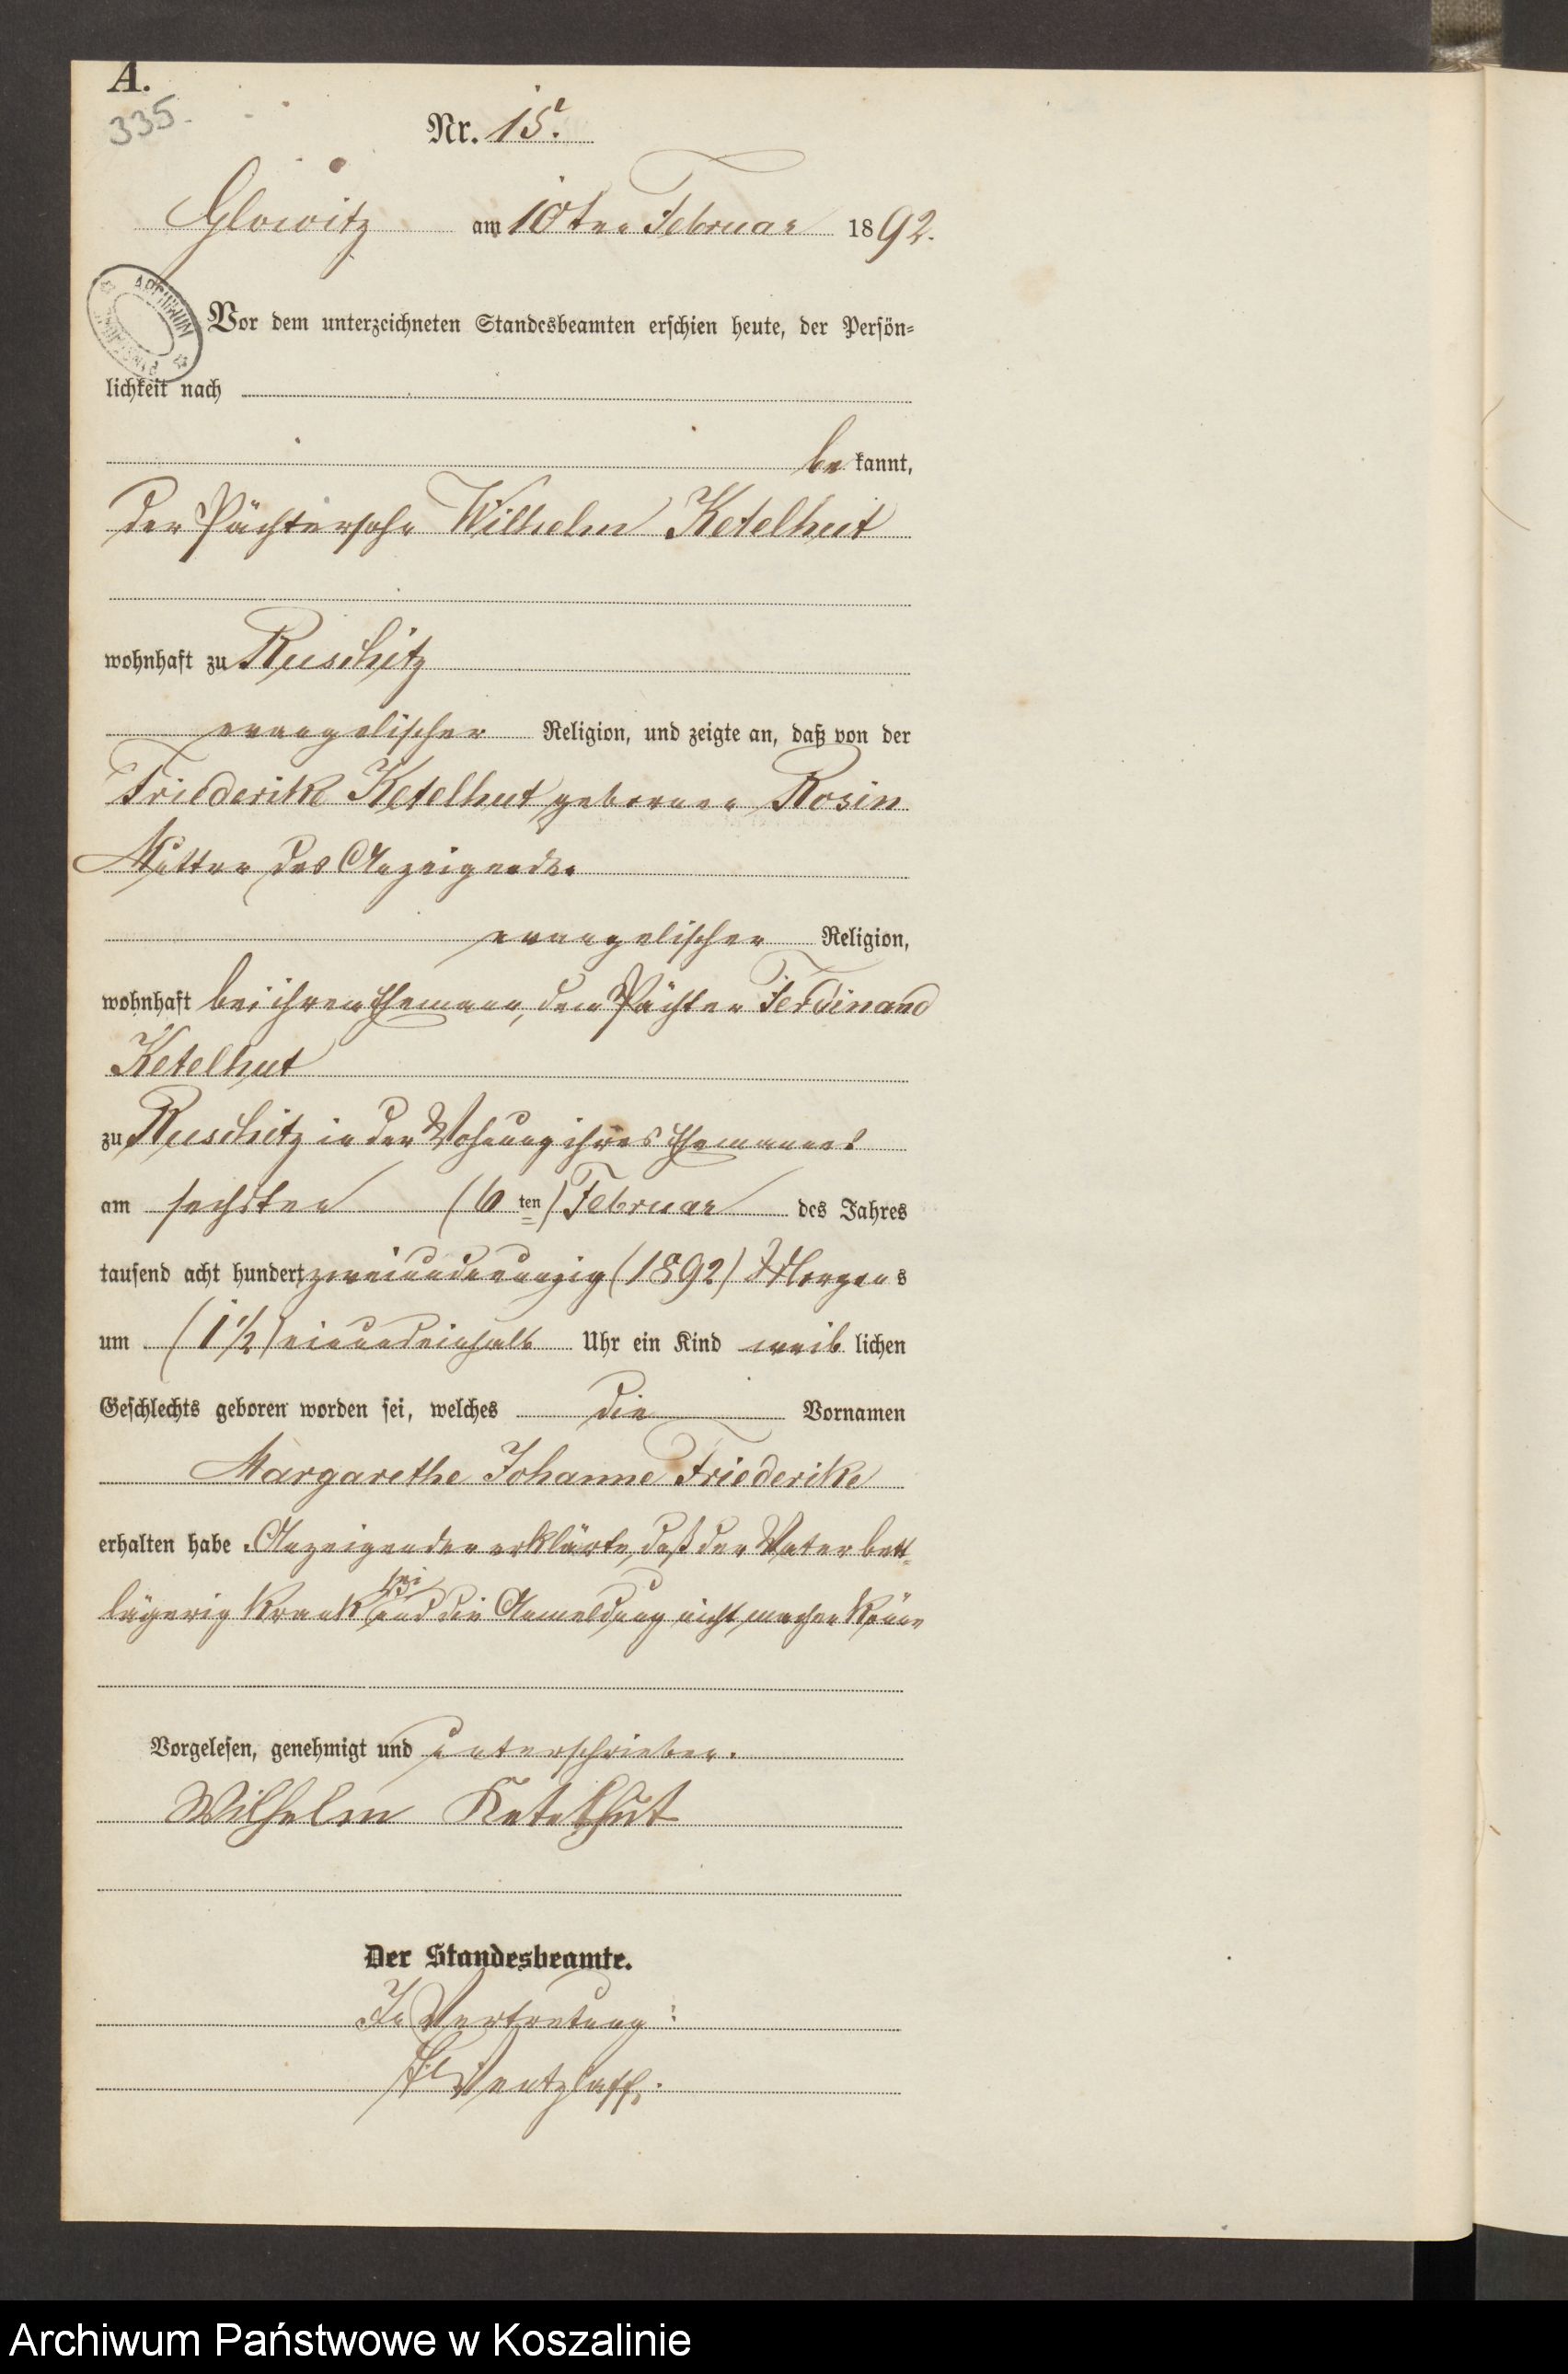 A.
335.
Nr. 15.
Glowitz am 10ten Februar 1892.
ARCHIWUM
Vor dem unterzeichneten Standesbeamten erschien heute, der Persön-
lichkeit nach
be kannt,
der Pächtersohn Wilhelm Ketelhut
wohnhaft zu Ruschitz
evangelischer Religion, und zeigte an, daß von der
Friederike Ketelhut geborenen Rosin
Mutter des Anzeigenden
evangelischer Religion,
wohnhaft bei ihrem Ehemann, dem Pächter Ferdinand
Ketelhut
zu Ruschitz in der Wohnung ihres Ehemannes
am sechsten (6 ten) Februar des Jahres
tausend acht hundert zweiundneunzig (1892) Morgens
um (1 1/2) einundeinhalb Uhr ein Kind weib lichen
Geschlechts geboren worden sei, welches die Vornamen
Margarethe Johanne Friederike
erhalten habe. Anzeigender erklärte, daß der Vater bett-
lägerig krank sei und die Anmeldung nicht machen könne
Vorgelesen, genehmigt und unterschrieben.
Wilhelm Ketelhut
Der Standesbeamte.
In Vertretung:
Wentzlaff.
Archiwum Państwowe w Koszalinie